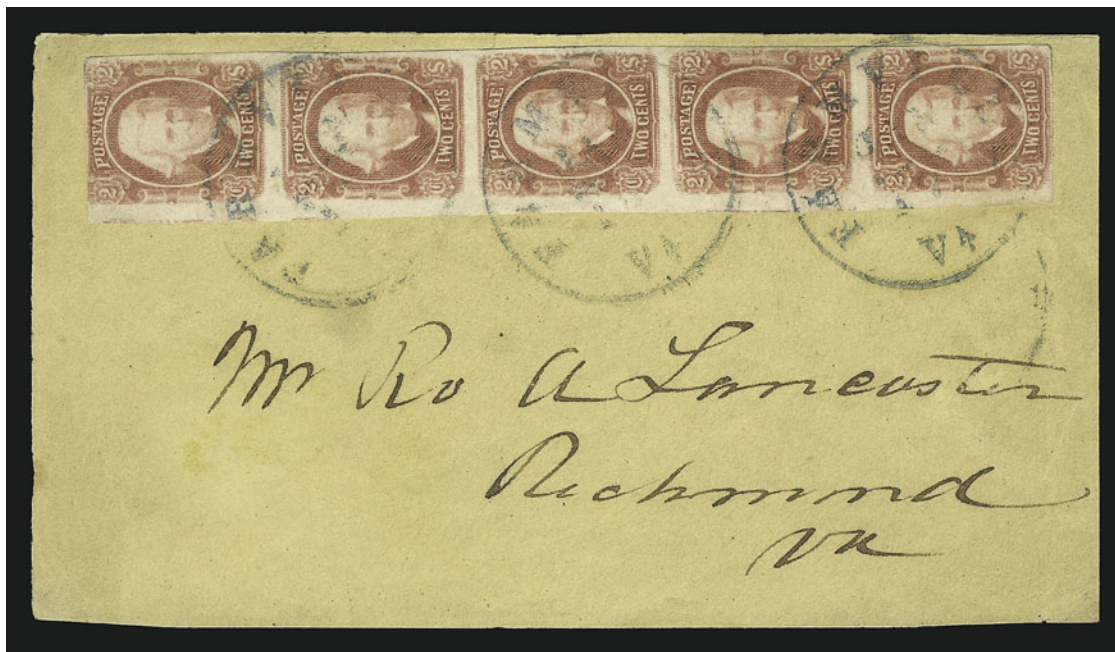 2 POSTAGE 2 TWO CENTS S C
2 POSTAGE 2 TWO CENTS S C
2 POSTAGE 2 TWO CENTS S C
2 POSTAGE 2 TWO CENTS S C
2 POSTAGE 2 TWO CENTS S C
VA
VA
Mr Ro A Lancaster
Richmond
Va